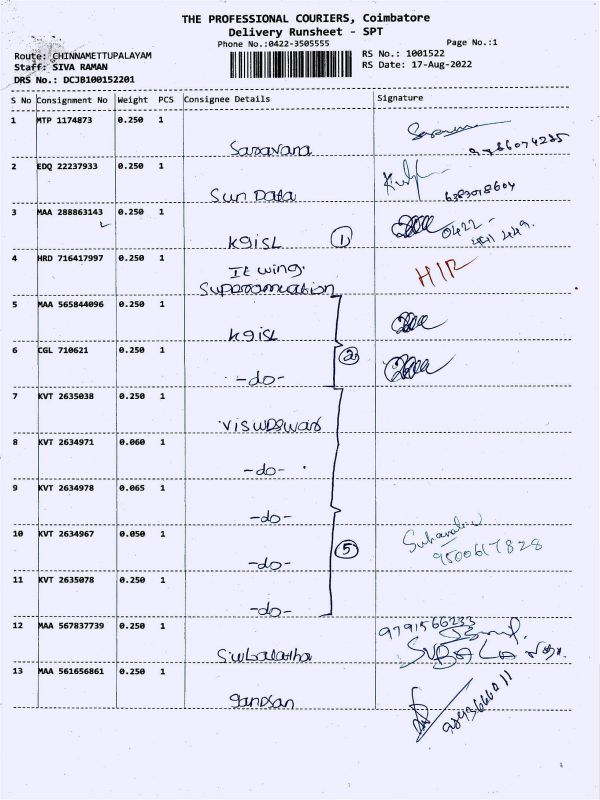 THE PROFESSIONAL COURIERS, Coimbatore
Delivery Runsheet - SPT
Phone No.:0422-3505555
Page No.:1
Route: CHINNAMETTUPALAYAM
RS No.: 1001522
Staff: SIVA RAMAN
RS Date: 17-Aug-2022
DRS No.: DCJB100152201
S No Consignment No Weight PCS Consignee Details Signature
1 MTP 1174873 0.250 1
Saravana
2 EDQ 22237933 0.250 1
Sun Data
6383018604
3 MAA 288863143 0.250 1
0422-
KgisL 1
4 HRD 716417997 0.250 1
It wing.
5 MAA 565844096 0.250 1
KgisL
6 CGL 710621 0.250 1 2
-do-
7 KVT 2635038 0.250 1
Visweswar
8 KVT 2634971 0.060 1
-do-
9 KVT 2634978 0.065 1
-do-
10 KVT 2634967 0.050 1
9500617828
-do- 5
11 KVT 2635078 0.250 1
-do-
12 MAA 567837739 0.250 1
9791566233
Subalatha
13 MAA 561656861 0.250 1
ganesan